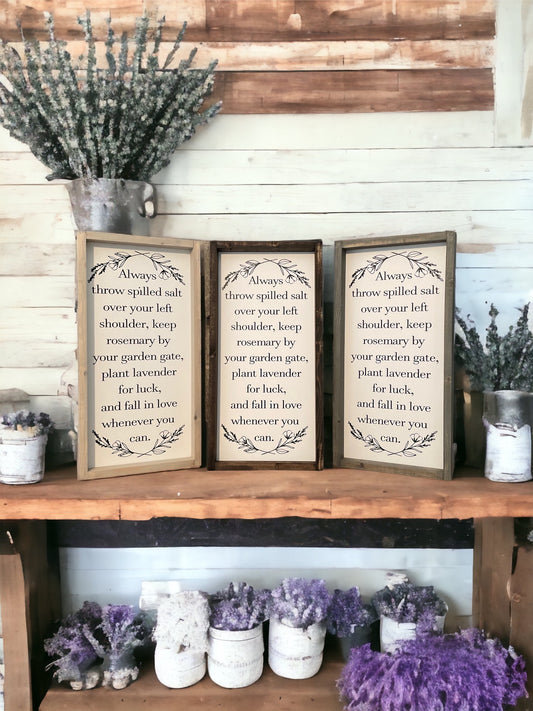 Always
throw spilled salt
over your left
shoulder, keep
rosemary by
your garden gate,
plant lavender
for luck,
and fall in love
whenever you
can.
Always
throw spilled salt
over your left
shoulder, keep
rosemary by
your garden gate,
plant lavender
for luck,
and fall in love
whenever you
can.
Always
throw spilled salt
over your left
shoulder, keep
rosemary by
your garden gate,
plant lavender
for luck,
and fall in love
whenever you
can.